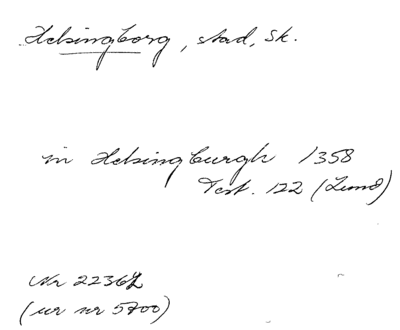 Helsingborg, stad, Sk.
in Helsingburgh 1358
Test. 122 (Lund)
Nr 22367
(ur nr 5700)